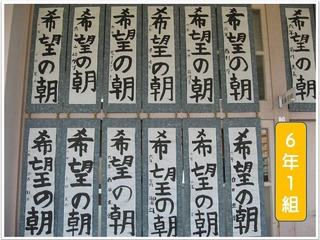 希望の朝
希望の朝
希望の朝
希望の朝
希望の朝
希望の朝
希望の朝
希望の朝
希望の朝
希望の朝
希望の朝
6年1組